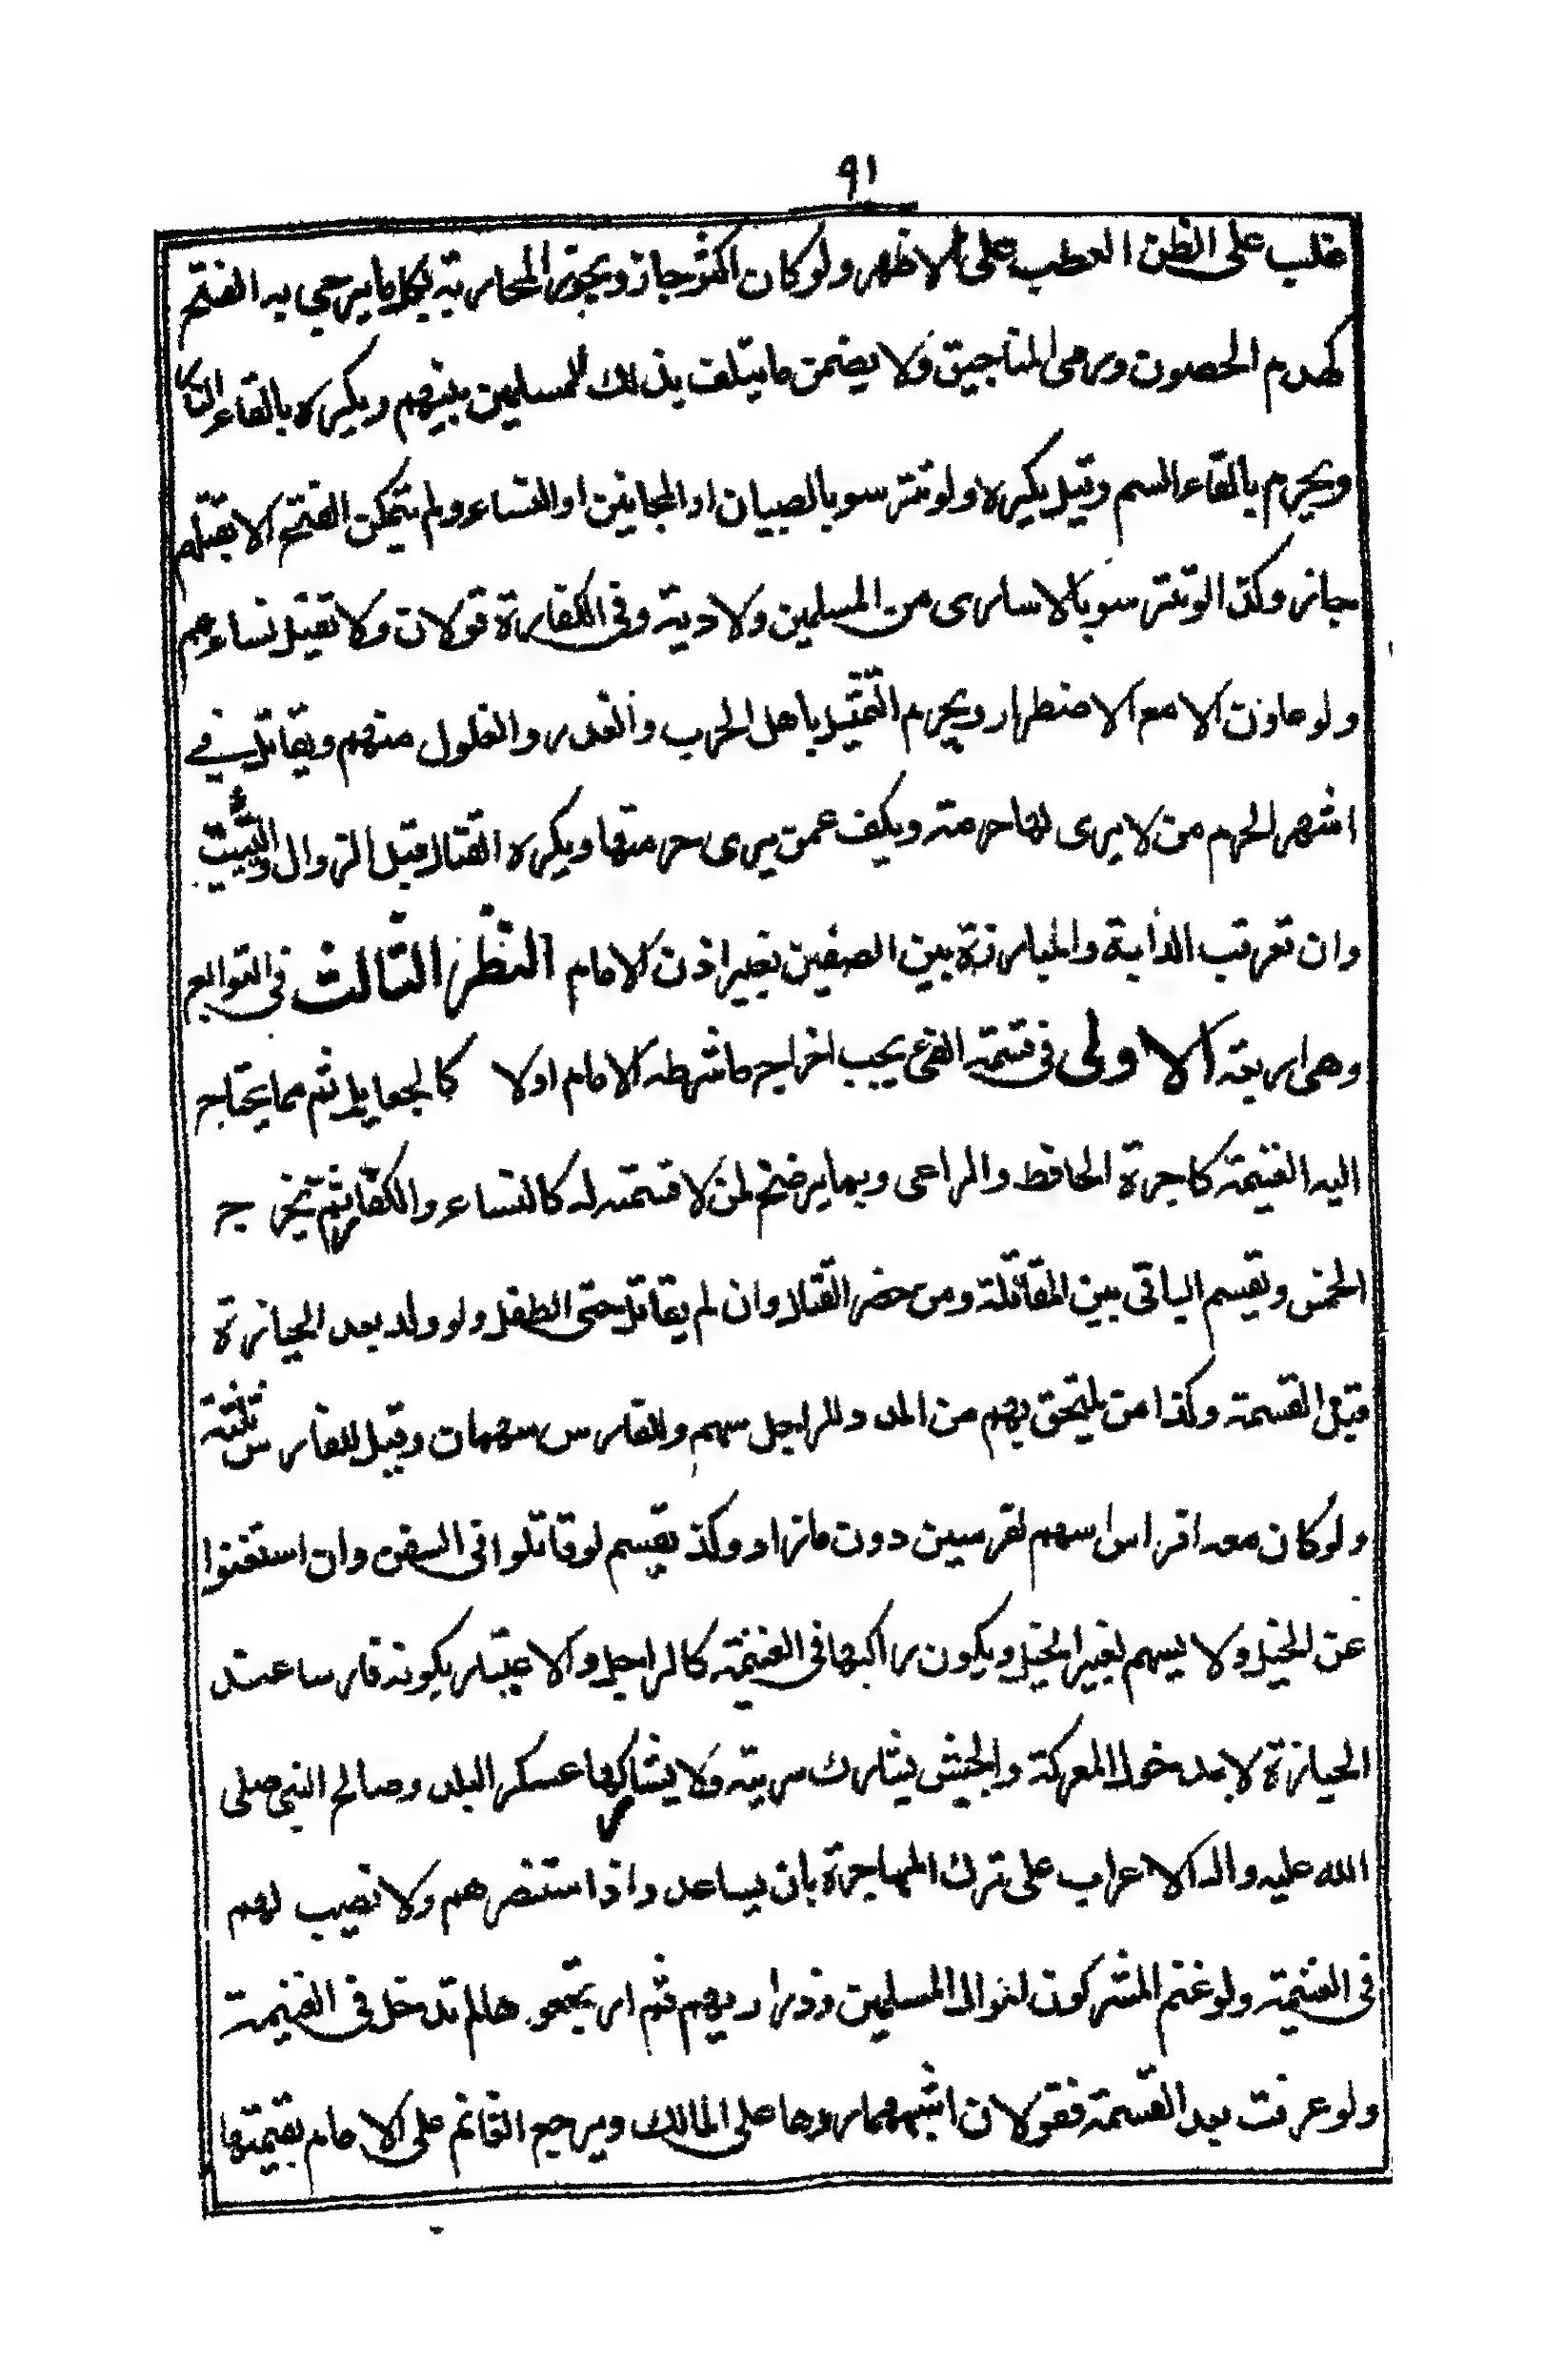 ٩١
غلب على الظن العطب على الاظهر ولو كان اكثر جاز ويجوز المحاربة بكل ما يرجى به الفتح
كهدم الحصون ورمى المناجيق ولا يضمن ما يتلف بذلك للمسلمين بينهم ويكره بالقاء النار
ويحرم بالقاء السم وقيل يكره ولو تترسو بالصبيان او المجانين او النساء ولم يتمكن الفتح الا بقتلهم
جاز وكذا لو تترسو بالاسارى من المسلمين ولا دية وفى الكفارة قولان ولا تقتل نساءهم
ولو عاون الا مع الاضطرار ويحرم التمثيل باهل الحرب والغدر والغلول منهم ويقاتل في
اشهر الحرم من لا يرى لها حرمة ويكف عمن يرى حرمتها ويكره القتال قبل الزوال والتبييت
وان تعرقب الدابة والمبارزة بين الصفين بغير اذن الامام النظر الثالث فى التوابع
وهى اربعة الاولى فى قسمة الفئ يجب اخراج ما شرطه الامام اولا كالجعايل ثم مما يحتاج
اليه الغنيمة كاجرة الحافظ والراعى وبما يرضخ لمن لا قسمة له كالنساء والكفار ثم يخرج
الخمس ويقسم الباقى بين المقاتلة ومن حضر القتال وان لم يقاتل حتى الطفل ولو ولد بعد الحيازة
قبل القسمة وكذا من يلتحق بهم من المدد للراجل سهم وللفارس سهمان وقيل للفارس ثلثة
ولو كان معه افراس اسهم لفرسين دون ما زاد وكذ يقسم لو قاتلوا فى السفن وان استغنوا
عن الخيل ولا يسهم لغير الخيل ويكون راكبها فى الغنيمة كالراجل والاعتبار بكونه فارسا عند
الحيازة لا بدخول المعركة والجيش يشارك سريته ولا يشاركها عسكر البلد وصالح النبى صلى
الله عليه واله الاعراب على ترك المهاجرة بان يساعدوا اذا استنصرهم ولا نصيب لهم
فى الغنيمة ولو غنم المشركون اموال المسلمين وذراريهم ثم ارتجعوها لم تدخل فى الغنيمة
ولو عرفت بعد القسمة فقولان اشبههما ردها على المالك ويرجع الغانم على الامام بقيمتها